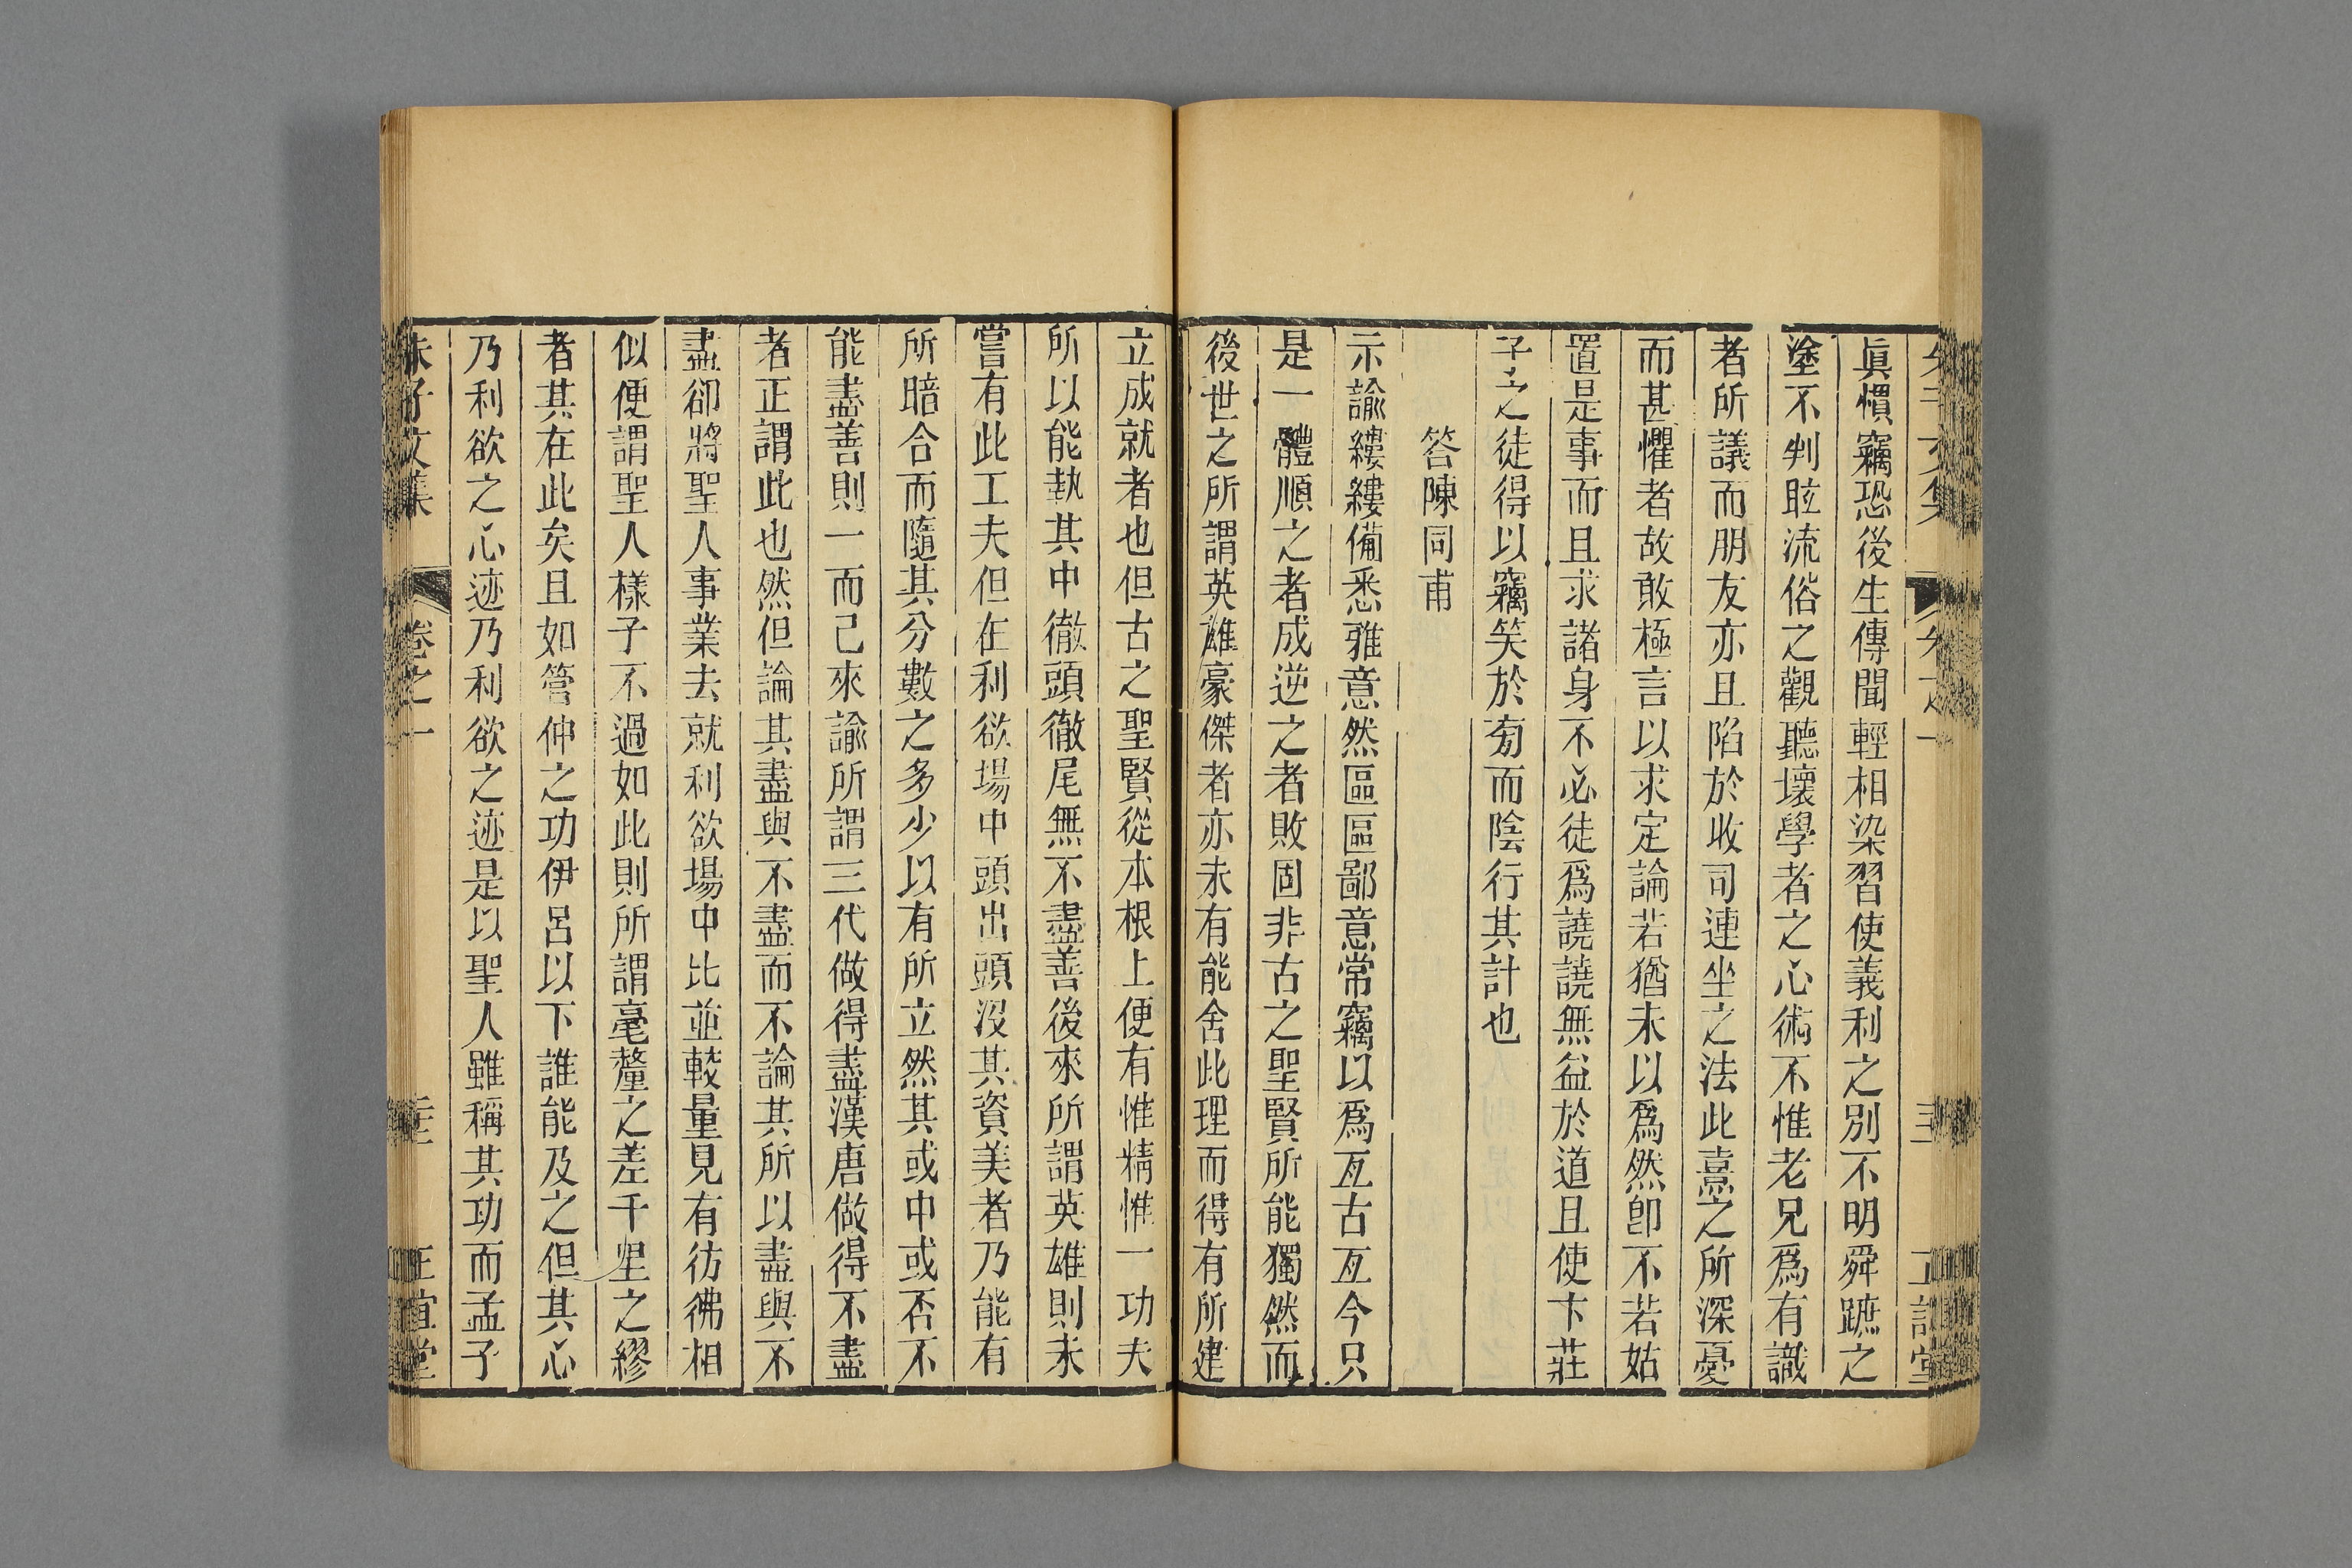 眞慣竊恐後生傳聞輕相染習使義利之別不明舜蹠之
塗不判眩流俗之觀聽壞學者之心術不惟老兄爲有識
者所議而朋友亦且陷於收司連坐之法此熹之所深憂
而甚懼者故敢極言以求定論若猶未以爲然卽不若姑
置是事而且求諸身不必徒爲譊譊無益於道且使卞莊
子之徒得以竊笑於㫄而陰行其計也
答陳同甫
示諭縷縷備悉雅意然區區鄙意常竊以爲亙古亙今只
是一體順之者成逆之者敗固非古之聖賢所能獨然而
後世之所謂英雄豪傑者亦未有能舍此理而得有所建
立成就者也但古之聖賢從本根上便有惟精惟一功夫
所以能執其中徹頭徹尾無不盡善後來所謂英雄則未
嘗有此工夫但在利欲場中頭出頭沒其資美者乃能有
所暗合而隨其分數之多少以有所立然其或中或否不
能盡善則一而已來諭所謂三代做得盡漢唐做得不盡
者正謂此也然但論其盡與不盡而不論其所以盡與不
盡卻將聖人事業去就利欲場中比並較量見有彷彿相
似便謂聖人樣子不過如此則所謂毫釐之差千里之繆
者其在此矣且如管仲之功伊呂以下誰能及之但其心
乃利欲之心迹乃利欲之迹是以聖人雖稱其功而孟子
朱子文集 卷之一 正誼堂